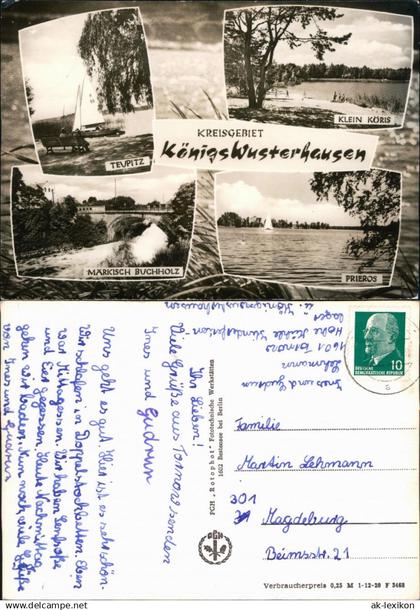 TEUPITZ
KLEIN KÖRIS
KREISGEBIET
Königs Wusterhausen
MÄRKISCH BUCHHOLZ
PRIEROS
Ihr Lieben!
Viele Grüße aus Tornow senden
Ines und Gudrun
Uns geht es gut. Hier ist es sehr schön.
Wir schlafen in Doppelstockbetten. Eben
war Mittagessen. Wir haben
und Eis gegessen. Heute Nachmittag
gehen wir baden. Nun noch viele Grüße
von Ines und Gudrun
Ines und Gudrun
Lehmann
1601 Tornow
Hohe Mühle
lager
Königswusterhausen
PGH „Rotophot" Fototechnische Werkstätten
1602 Bestensee bei Berlin
PGH
DEUTSCHE
DEMOKRATISCHE REPUBLIK
10
Familie
Martin Lehmann
301
Magdeburg
Beimsstr. 21
Verbraucherpreis 0,25 M 1-12-28 F 3468
© ak-lexikon
ak-lexikon.com